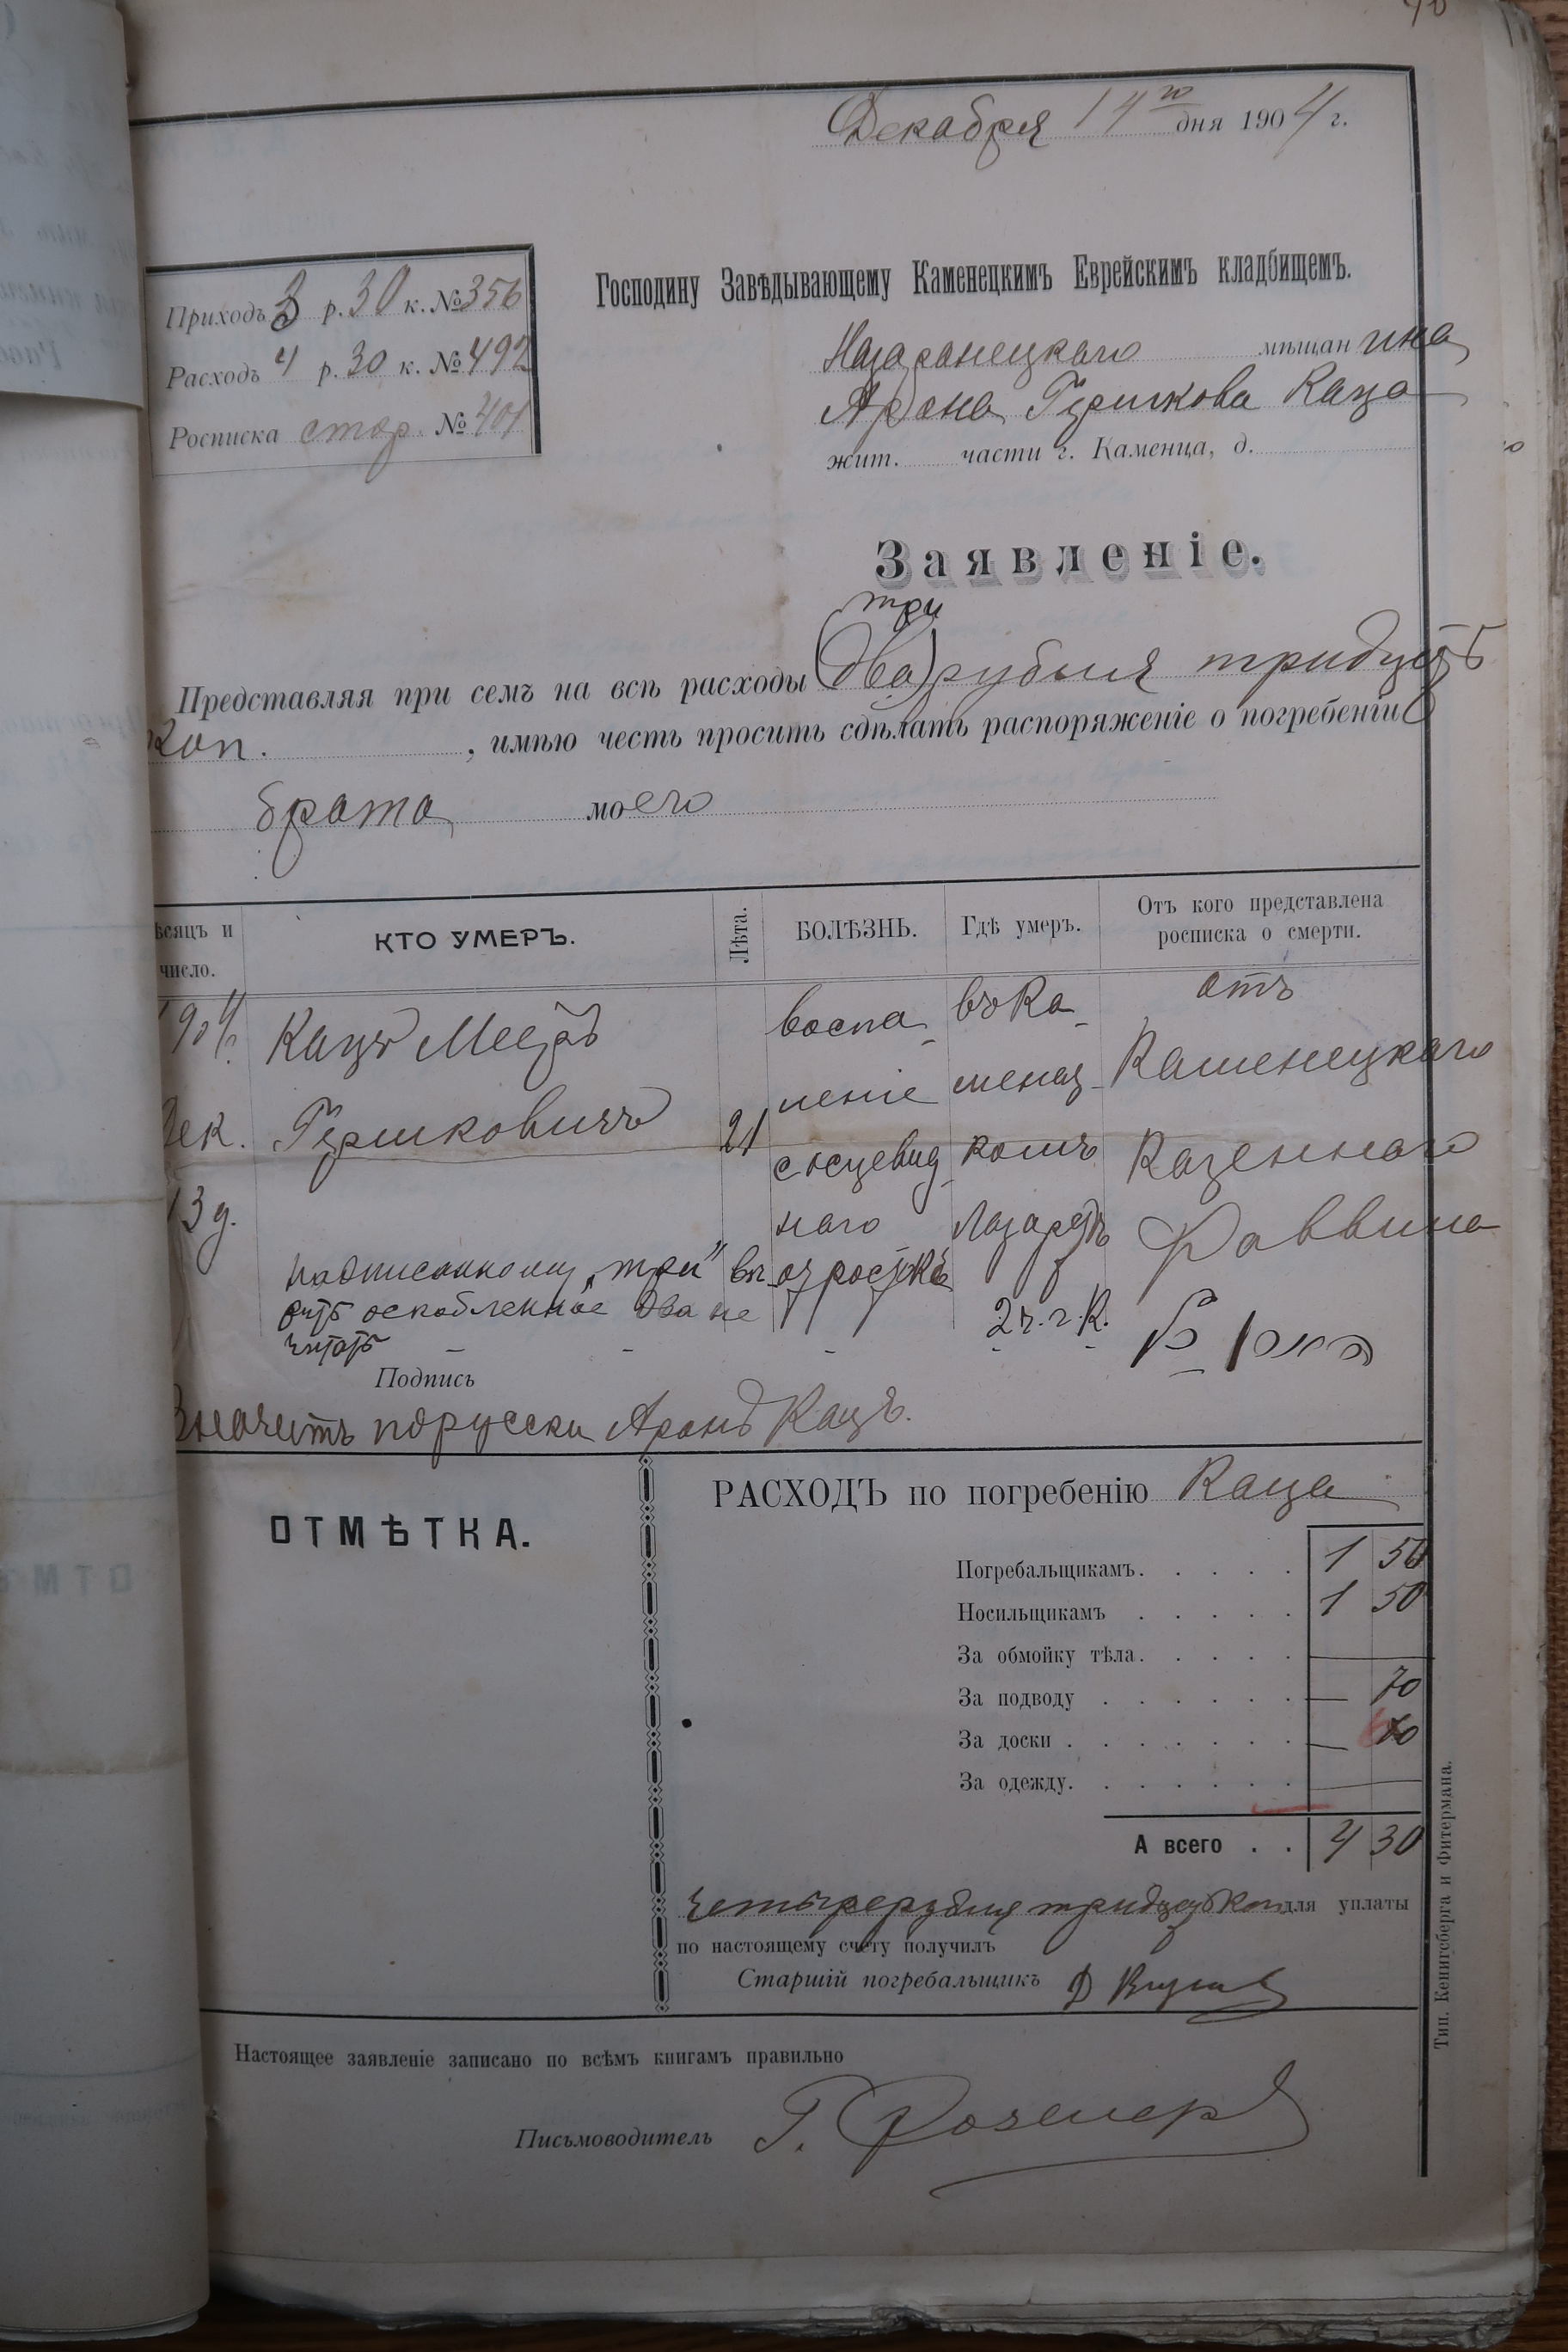 Декабря 14го дня 1904 г.
Приходъ 3 р. 30 к. № 356
Расходъ 4 р. 30 к. № 492
Росписка стор. № 401
Господину Завѣдывающему Каменецкимъ Еврейскимъ кладбищемъ.
мѣщанина
Арона Гершкова Каца
жит. части г. Каменца, д.
Заявленіе.
три
Представляя при семъ на всѣ расходы (два) рубля тридцать
коп. , имѣю честь просить сдѣлать распоряженіе о погребеніи
брата моего
ѣсяцъ и число.
КТО УМЕРЪ.
Лѣта.
БОЛѢЗНЬ.
Гдѣ умеръ.
Отъ кого представлена росписка о смерти.
1904 г.
Дек.
13 д.
Кацъ Мееръ
Гершковичъ
21
воспа-
леніе
наго
въ Ка-
менец-
комъ
Лазаретѣ
2 ч. г. К.
отъ
Каменецкаго
Казеннаго
Раввина
надписанному „три" вѣ-
рить оскобленное два не
читать
Подпись
Значитъ порусски Аронъ Кацъ.
ОТМѢТКА.
РАСХОДЪ по погребенію Каца
Погребальщикамъ. 1 50
Носильщикамъ 1 50
За обмойку тѣла. —
За подводу — 70
За доски — 60
За одежду.
А всего 4 30
четыре рубля тридцать коп для уплаты
по настоящему счету получилъ
Старшій погребальщикъ
Настоящее заявленіе записано по всѣмъ книгамъ правильно
Письмоводитель Г.
Тип. Кенигсберга и Фитермана.